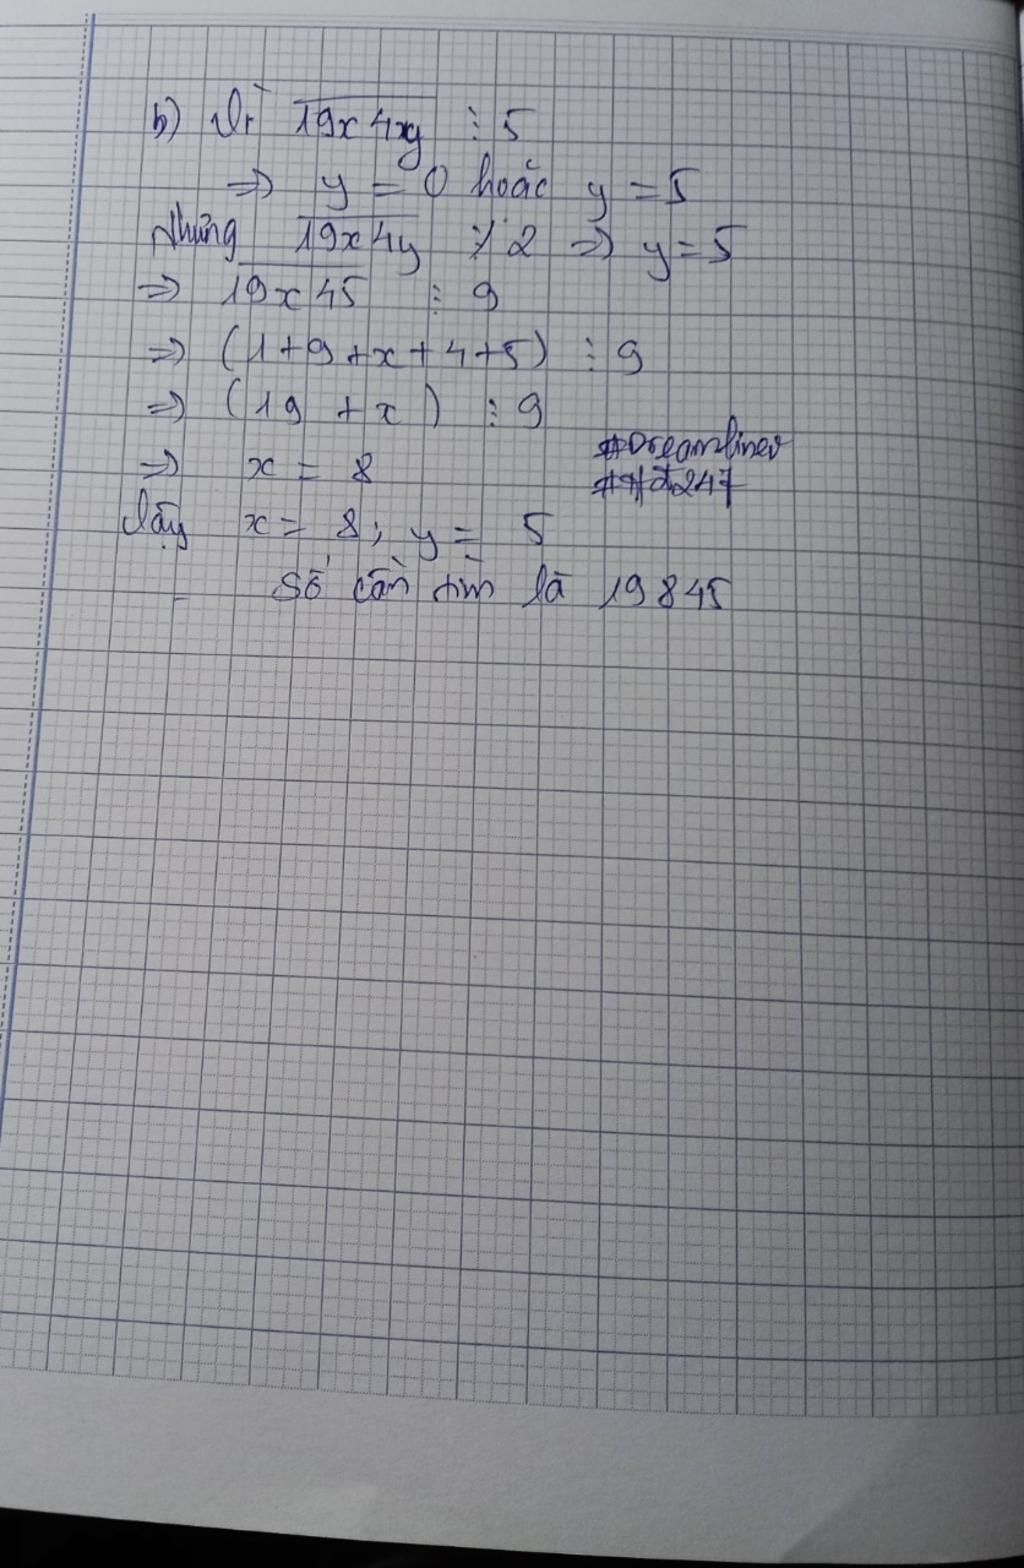 b) Vì 19x4xy ⋮ 5
⇒ y = 0 hoặc y = 5
Nhưng 19x4y ⋮̸ 2 ⇒ y = 5
⇒ 19x45 ⋮ 9
⇒ (1+9+x+4+5) ⋮ 9
⇒ (19 + x) ⋮ 9
⇒ x = 8
#Dreamliner
##đ247
Vậy x = 8; y = 5
Số cần tìm là 19845